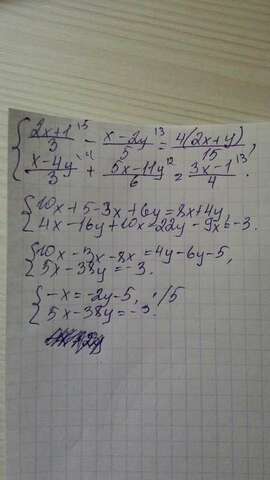 { (2x+1)/3 ¹⁵ - (x-2y)/5 ¹³ = 4(2x+y)/15,
(x-4y)/3 ¹⁴ + (5x-11y)/6 ¹² = (3x-1)/4 ¹³.
{ 10x+5-3x+6y=8x+4y,
4x-16y+10x-22y-9x=-3.
{ 10x-3x-8x=4y-6y-5,
5x-38y=-3.
{ -x=-2y-5, ·/5
5x-38y=-3.